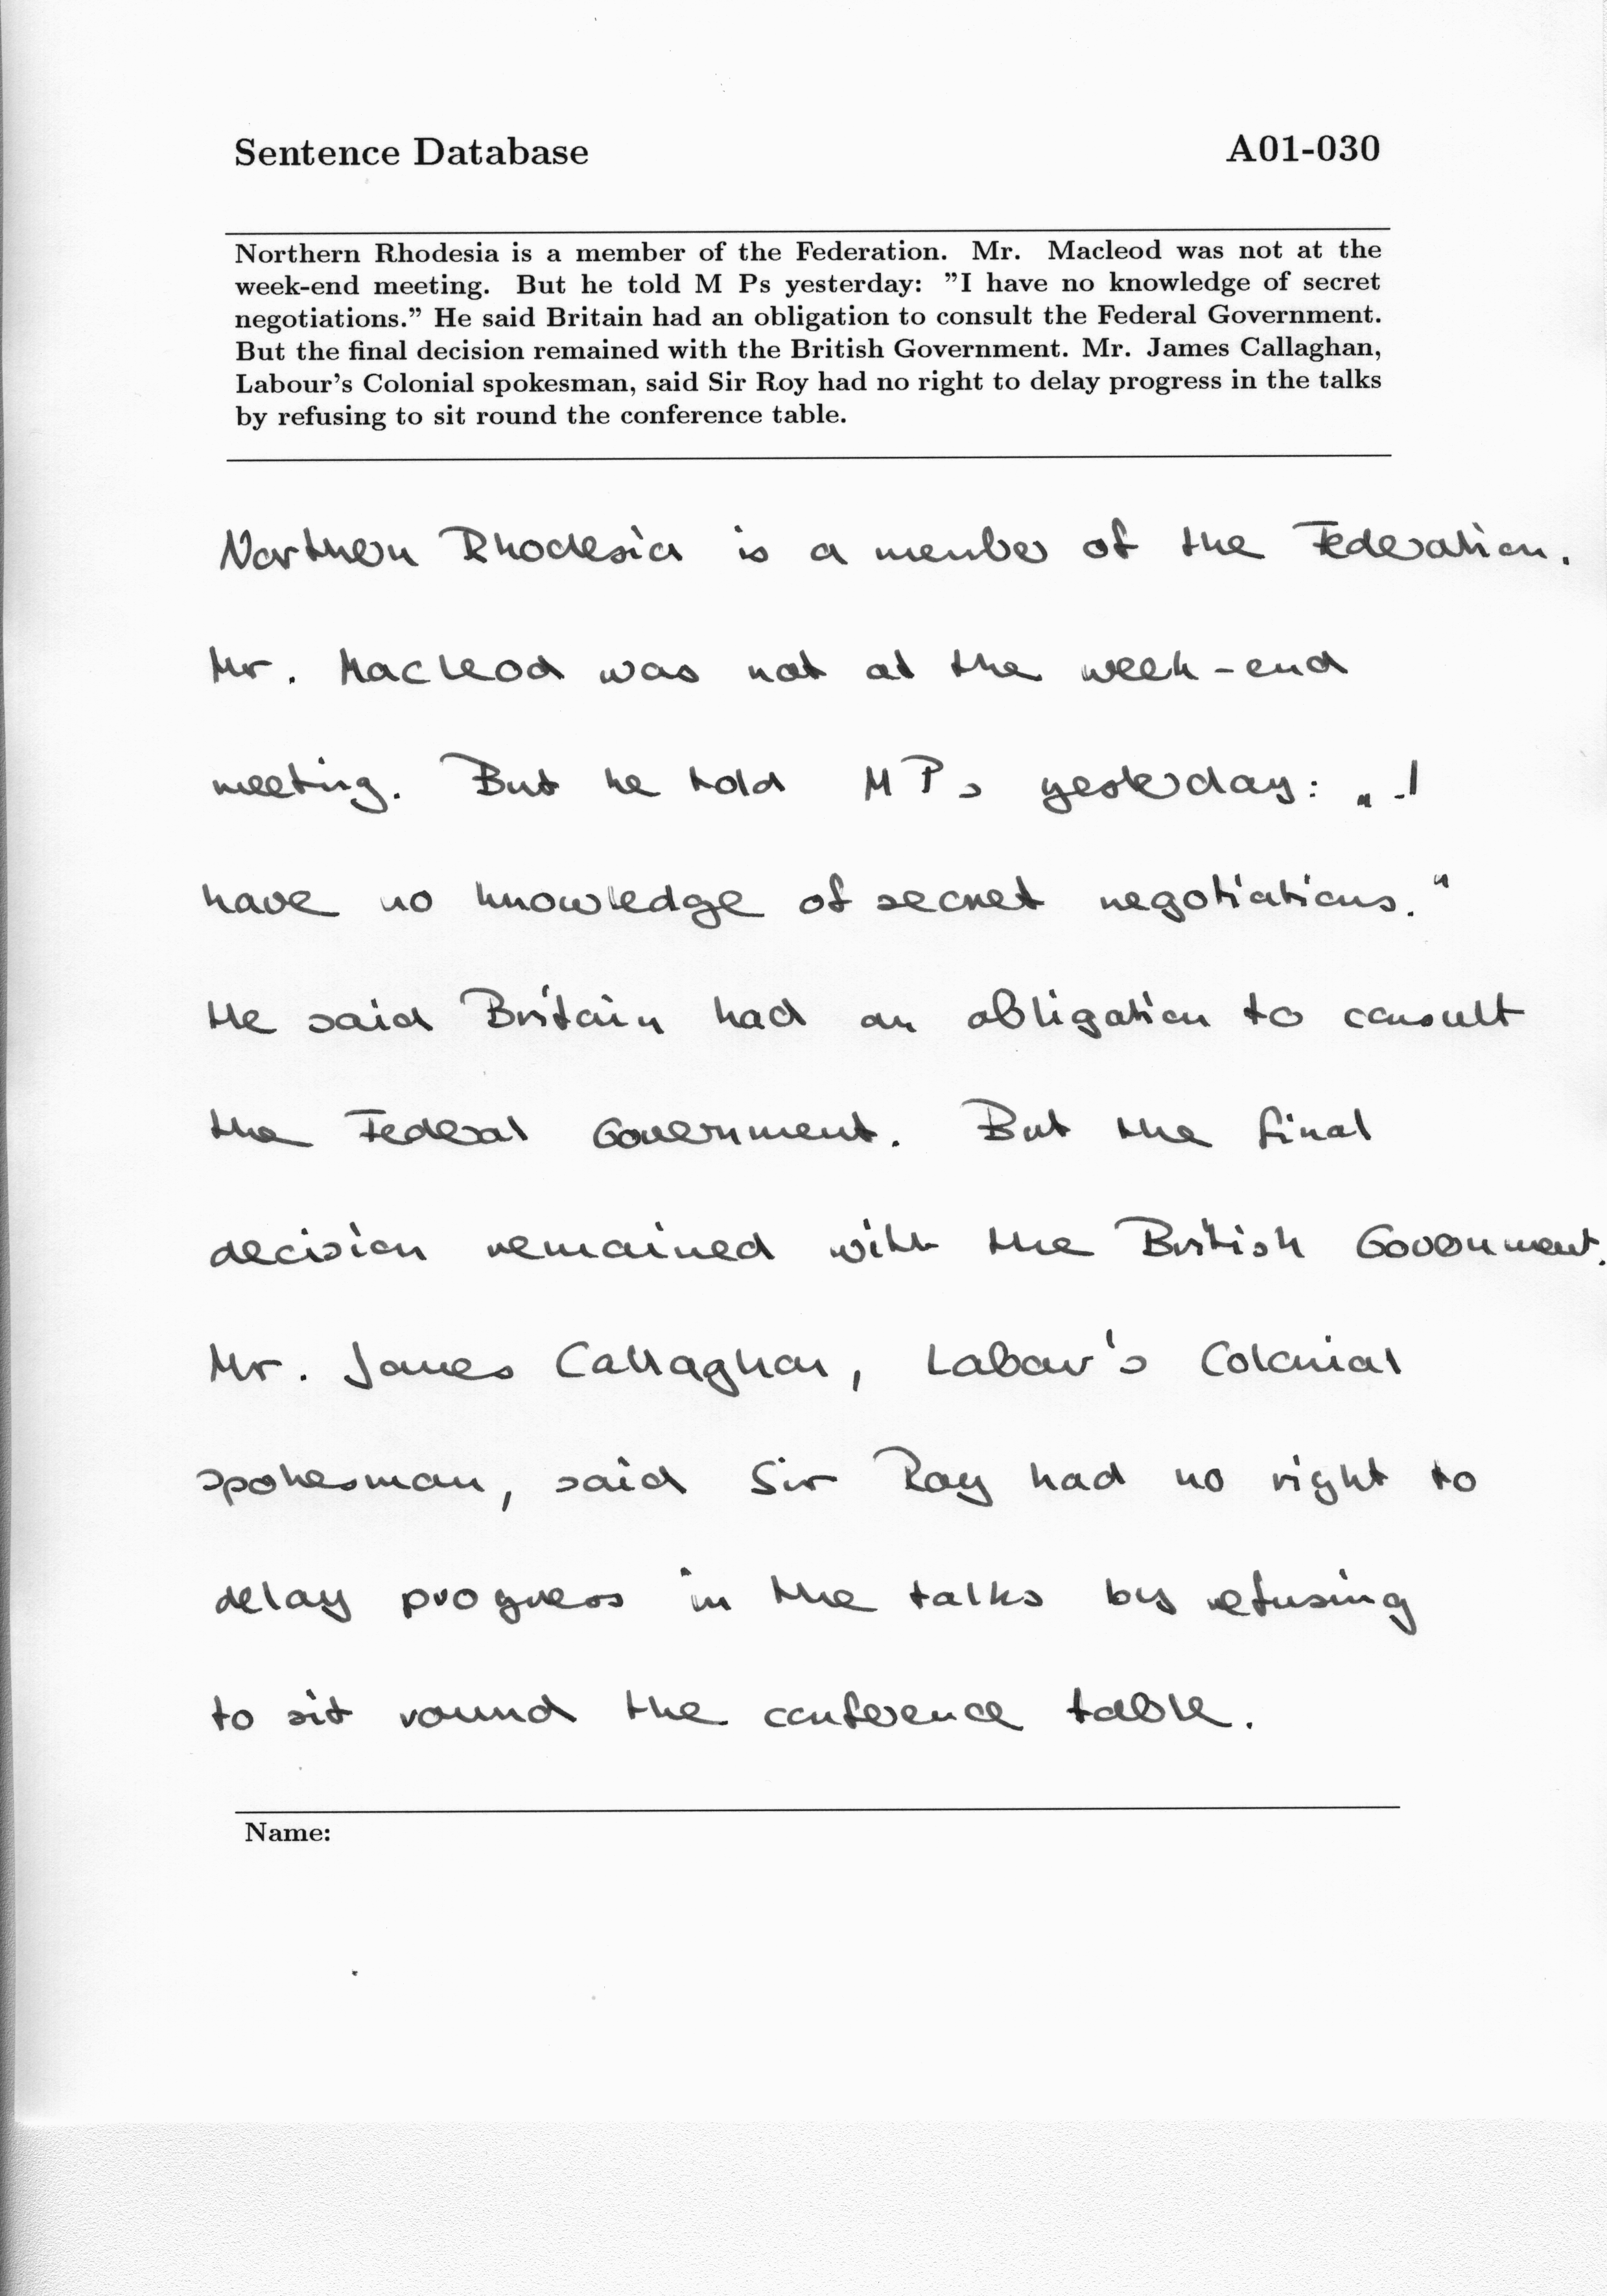 Sentence Database A01-030
Northern Rhodesia is a member of the Federation. Mr. Macleod was not at the
week-end meeting. But he told M Ps yesterday: ”I have no knowledge of secret
negotiations.” He said Britain had an obligation to consult the Federal Government.
But the final decision remained with the British Government. Mr. James Callaghan,
Labour’s Colonial spokesman, said Sir Roy had no right to delay progress in the talks
by refusing to sit round the conference table.
Northern Rhodesia is a member of the Federation.
Mr. Macleod was not at the week-end
meeting. But he told M Ps yesterday: „I
have no knowledge of secret negotiations.“
He said Britain had an obligation to consult
the Federal Government. But the final
decision remained with the British Government.
Mr. James Callaghan, Labour's Colonial
spokesman, said Sir Roy had no right to
delay progress in the talks by refusing
to sit round the conference table.
Name: